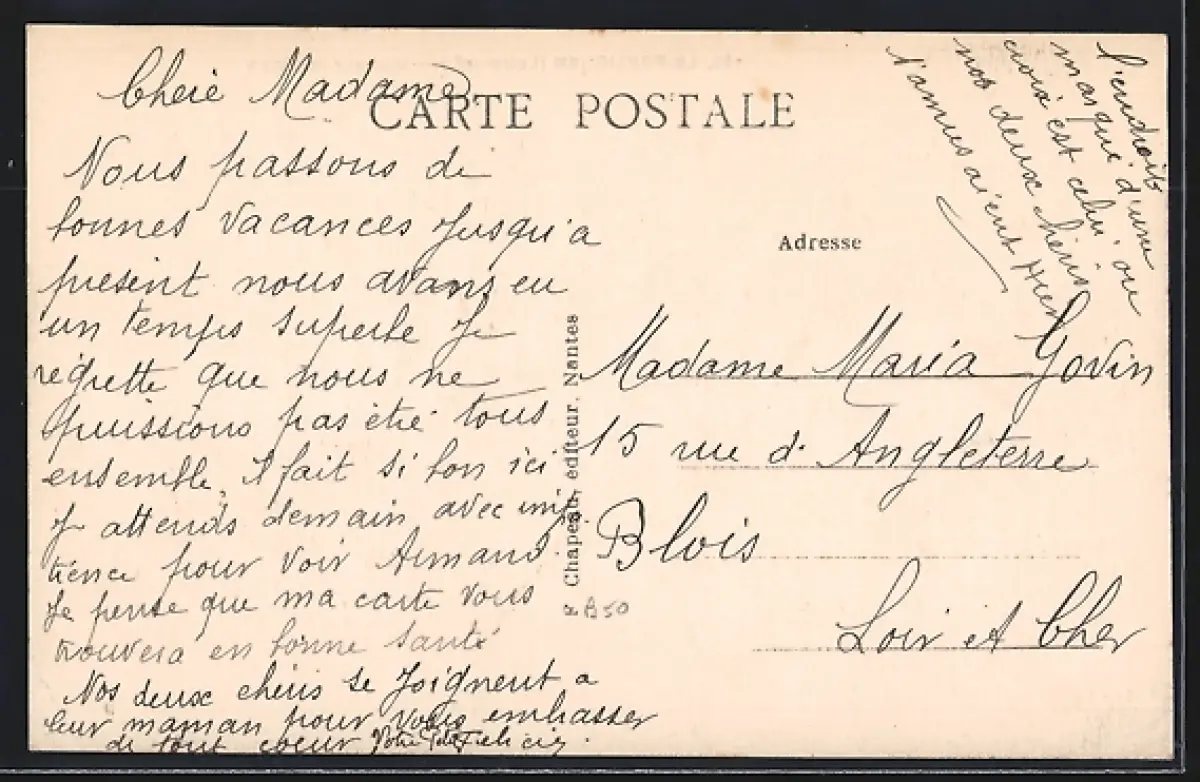 Cheie Madame
CARTE POSTALE
Nous passons de
bonnes vacances Jusqu'a
present nous avons eu
un temps superbe Je
regrette que nous ne
puissions pas être tous
ensemble, il fait si bon ici
J attends demain avec impa
tience pour voir Armand.
Je pense que ma carte vous
trouvera en bonne santé
Nos deux chéris se Joignent a
leur maman pour vous embrasser
de tout coeur Votre
l'endroit
marqué d'une
croix est celui ou
nos deux chéris
s'amusaient Hier
Adresse
Madame Maria Govin
15 rue d' Angleterre
Blois
Loir et Cher
Chapeau, éditeur, Nantes
B50